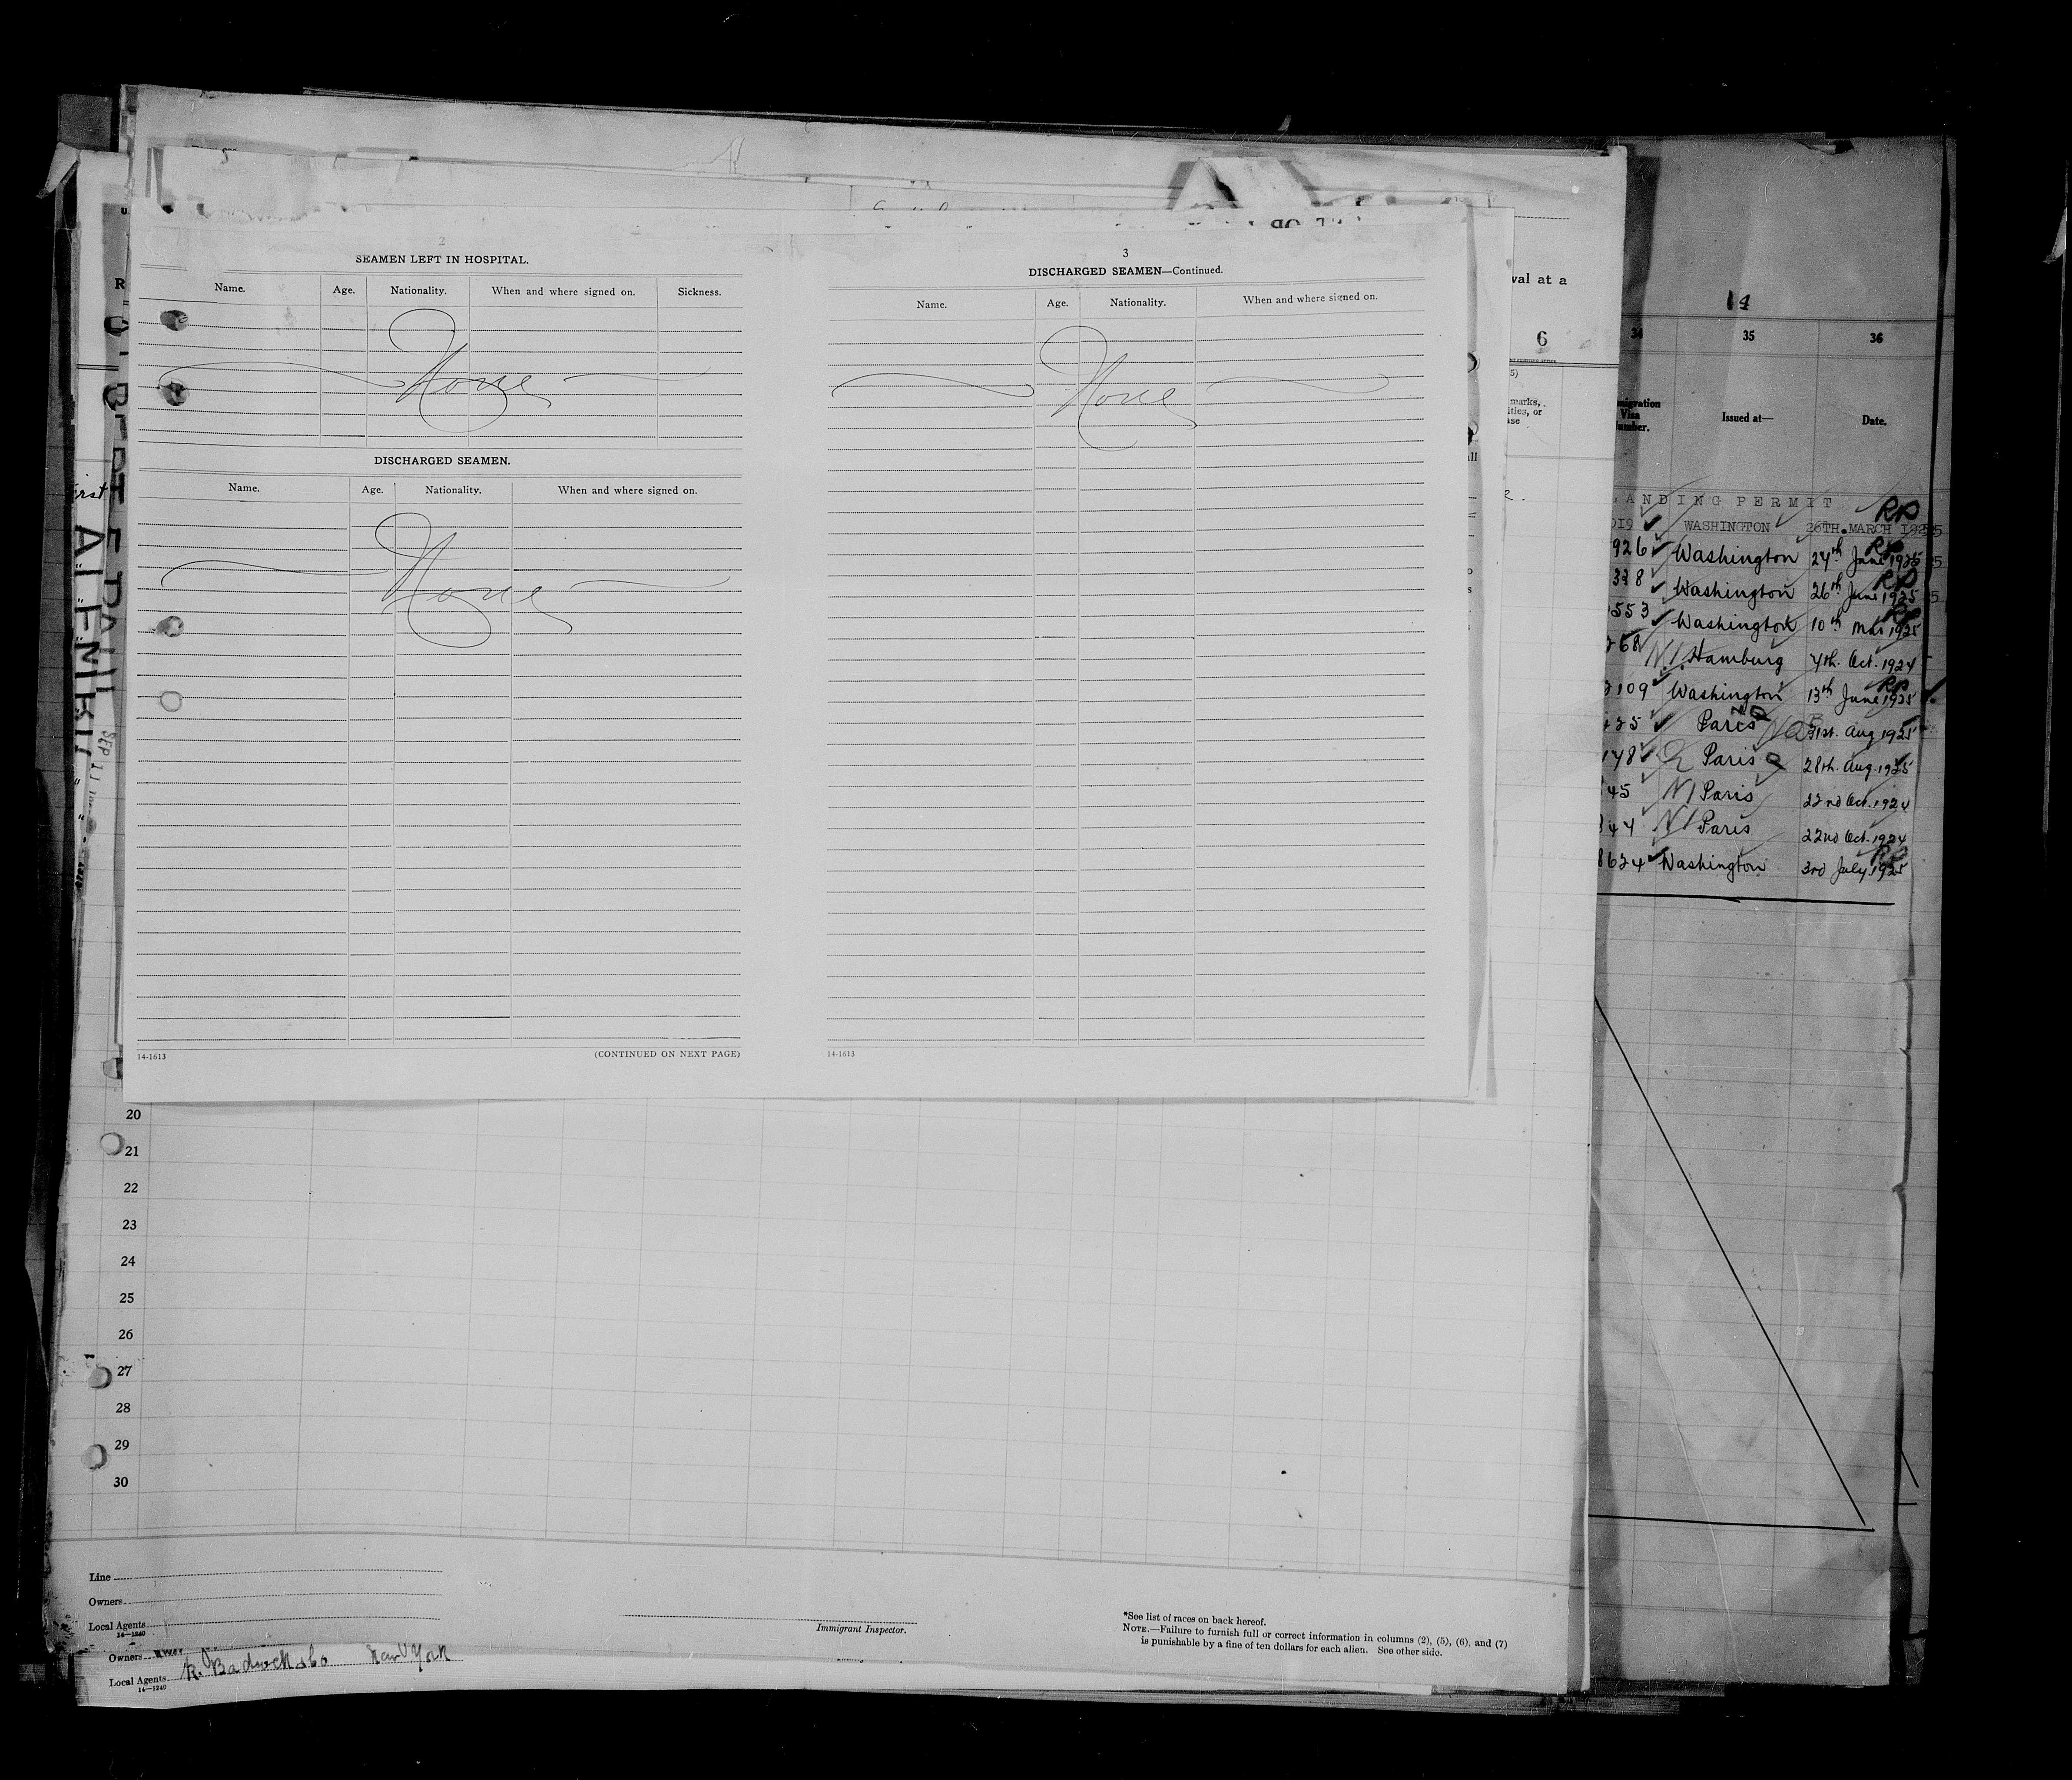 2
SEAMEN LEFT IN HOSPITAL.
Name. Age. Nationality. When and where signed on. Sickness.
None
DISCHARGED SEAMEN.
Name. Age. Nationality. When and where signed on.
None
14-1613 (CONTINUED ON NEXT PAGE)
3
DISCHARGED SEAMEN—Continued.
Name. Age. Nationality. When and where signed on.
None
14-1613
val at a
6
14
34 35 36
Visa Issued at— Date.
LANDING PERMIT
WASHINGTON 26TH. MARCH 1925
926 Washington 24th June 1925
328 Washington 26th June 1925
553 Washington 10th Mar 1925
268 N.I. Hamburg 4th. Oct. 1924
3109 Washington 13th June 1925
425 Paris 31st. Aug 1925
148 Paris 28th. Aug. 1925
45 Paris 22nd Oct. 1924
344 Paris 22nd Oct. 1924
8624 Washington 3rd July 1925
20
21
22
23
24
25
26
27
28
29
30
Line
Owners
Local Agents
14—1240
Immigrant Inspector.
*See list of races on back hereof.
NOTE.—Failure to furnish full or correct information in columns (2), (5), (6), and (7)
is punishable by a fine of ten dollars for each alien. See other side.
Owners
Local Agents New York
14—1240